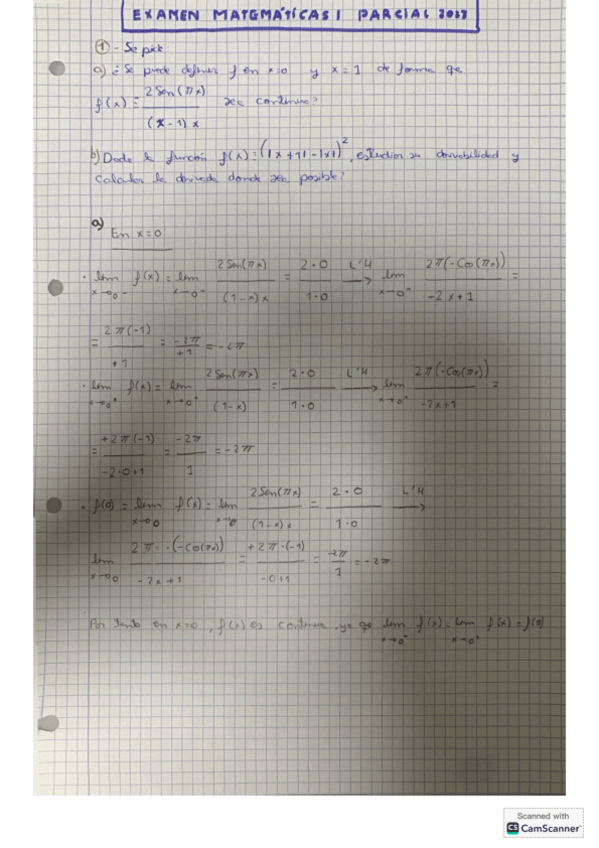 EXAMEN MATEMÁTICAS I PARCIAL 2023
① - Se pide:
a) ¿Se puede definir f en x=0 y x=1 de forma que
f(x) = 2 Sen(πx) / (x-1)x sea continua?
b) Dada la función f(x)=(|x+1|-|x|)², estudiar su derivabilidad y
calcular la derivada donde sea posible?
a) En x=0:
· lim x→0⁻ f(x) = lim x→0⁻ 2 Sen(πx) / (1-x)x = 2·0 / 1·0 L'H → lim x→0⁻ 2π(-Cos(πx)) / -2x+1 =
= 2π(-1) / +1 = -2π / +1 = -2π
· lim x→0⁺ f(x) = lim x→0⁺ 2 Sen(πx) / (1-x) = 2·0 / 1·0 L'H → lim x→0⁺ 2π(-Cos(πx)) / -2x+1 =
= +2π(-1) / -2·0+1 = -2π / 1 = -2π
· f(0) = lim x→0 f(x) = lim x→0 2 Sen(πx) / (1-x)x = 2·0 / 1·0 L'H →
lim x→0 2π·(-Cos(πx)) / -2x+1 = +2π·(-1) / -0+1 = -2π / 1 = -2π
Por tanto en x=0, f(x) es continua, ya que lim x→0⁻ f(x) = lim x→0⁺ f(x) = f(0)
Scanned with
CS CamScanner